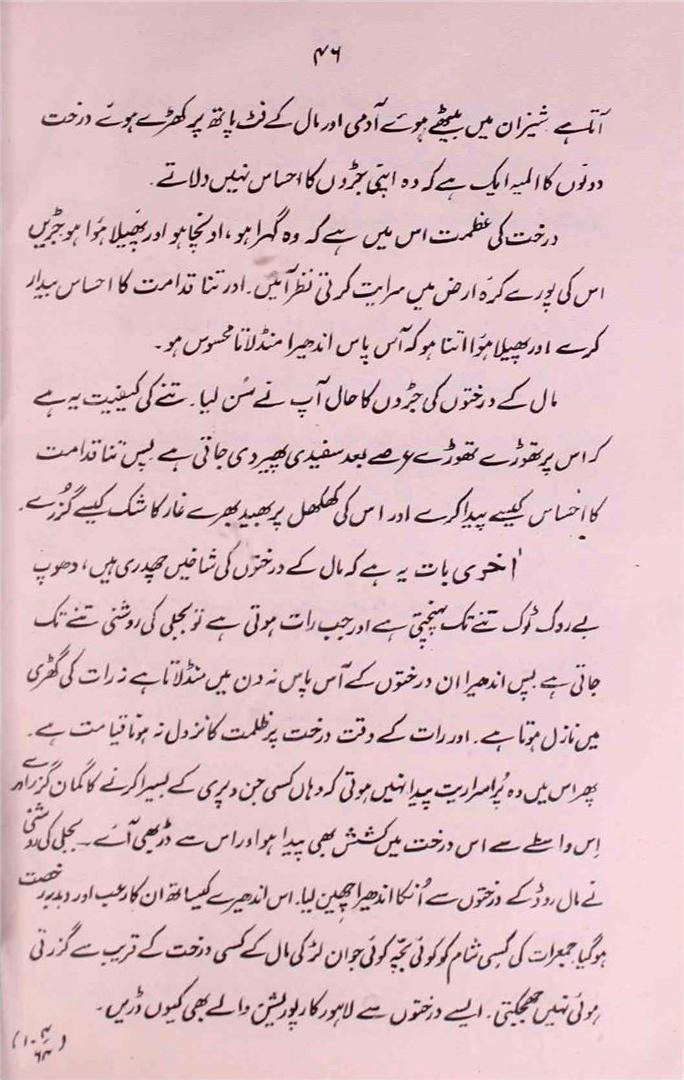 ۴۶
آتا ہے شیزان میں بیٹھے ہوئے آدمی اور مال کے فٹ پاتھ پر کھڑے ہوئے درخت
دونوں کا المیہ ایک ہے کہ وہ اپنی جڑوں کا احساس نہیں دلاتے۔
درخت کی عظمت اس میں ہے کہ وہ گہرا ہو، اونچا ہو اور پھیلا ہوا ہو جڑیں
اس کی پورے کرہ ارض میں سرایت کرتی نظر آئیں۔ اور تنا قدامت کا احساس بیدار
کرے اور پھیلا ہوا اتنا ہو کہ آس پاس اندھیرا منڈلاتا محسوس ہو۔
مال کے درختوں کی جڑوں کا حال آپ نے سُن لیا۔ تنے کی کیفیت یہ ہے
کہ اس پر تھوڑے تھوڑے عرصے بعد سفیدی پھیر دی جاتی ہے پس تنا قدامت
کا احساس کیسے پیدا کرے اور اس کی کھکھل پر بھید بھرے غار کا شک کیسے گزرے۔
آخری بات یہ ہے کہ مال کے درختوں کی شاخیں چھدری ہیں، دھوپ
بے روک ٹوک تنے تک پہنچتی ہے اور جب رات ہوتی ہے تو بجلی کی روشنی تنے تک
جاتی ہے پس اندھیرا ان درختوں کے آس پاس نہ دن میں منڈلاتا ہے نہ رات کی گھڑی
میں نازل ہوتا ہے۔ اور رات کے وقت درخت پر ظلمت کا نزول نہ ہونا قیامت ہے۔
پھر اس میں وہ پُراسراریت پیدا نہیں ہوتی کہ وہاں کسی جن و پری کے بسیرا کرنے کا گمان گزرے اور
اِس واسطے سے اس درخت میں کشش بھی پیدا ہو اور اس سے ڈر بھی آئے۔ بجلی کی روشنی
نے مال روڈ کے درختوں سے اُنکا اندھیرا چھین لیا۔ اس اندھیرے کیساتھ ان کا رعب اور دبدبہ رخصت
ہو گیا جمعرات کی کسی شام کو کوئی بچّہ کوئی جوان لڑکی مال کے کسی درخت کے قریب سے گزرتی
ہوئی نہیں جھجکتی۔ ایسے درختوں سے لاہور کارپوریشن والے بھی کیوں ڈریں۔